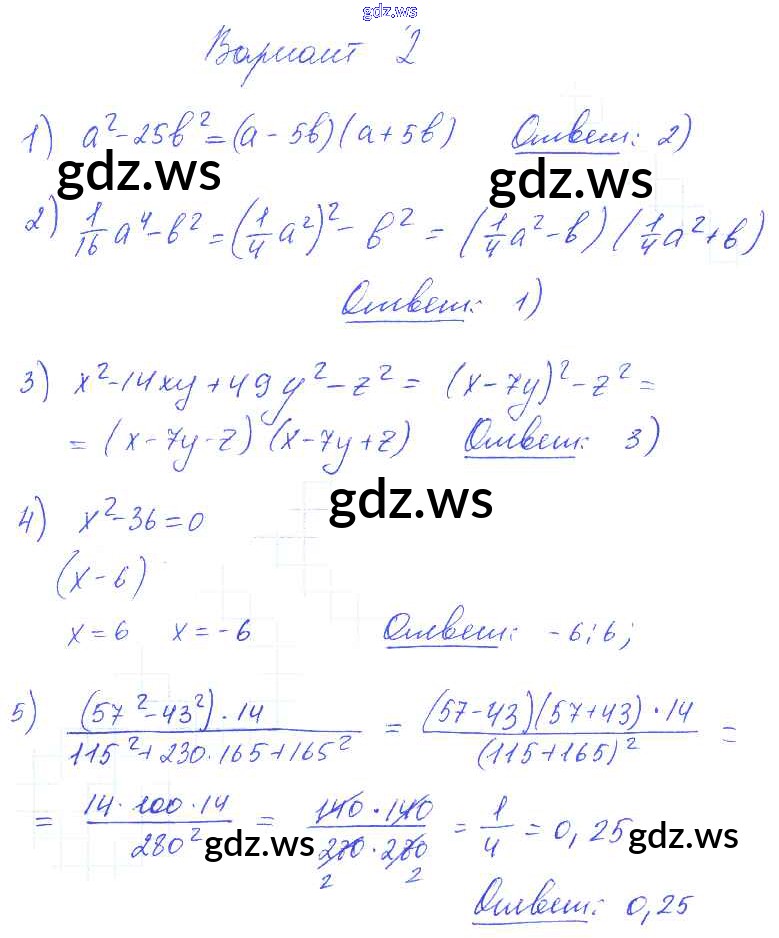 gdz.ws
Вариант 2
1) a²-25b²=(a-5b)(a+5b) Ответ: 2)
gdz.ws gdz.ws
2) 1/16 a⁴-b² = (1/4 a²)² - b² = (1/4 a²-b) (1/4 a²+b)
Ответ: 1)
3) x²-14xy+49y²-z² = (x-7y)²-z² =
= (x-7y-z) (x-7y+z) Ответ: 3)
gdz.ws
4) x²-36=0
(x-6)
x=6 x=-6 Ответ: -6; 6;
5) (57²-43²)·14 / 115²+230·165+165² = (57-43)(57+43)·14 / (115+165)² =
= 14·100·14 / 280² = 140·140 / 280·280 = 1/4 = 0,25
2 2
gdz.ws gdz.ws
Ответ: 0,25